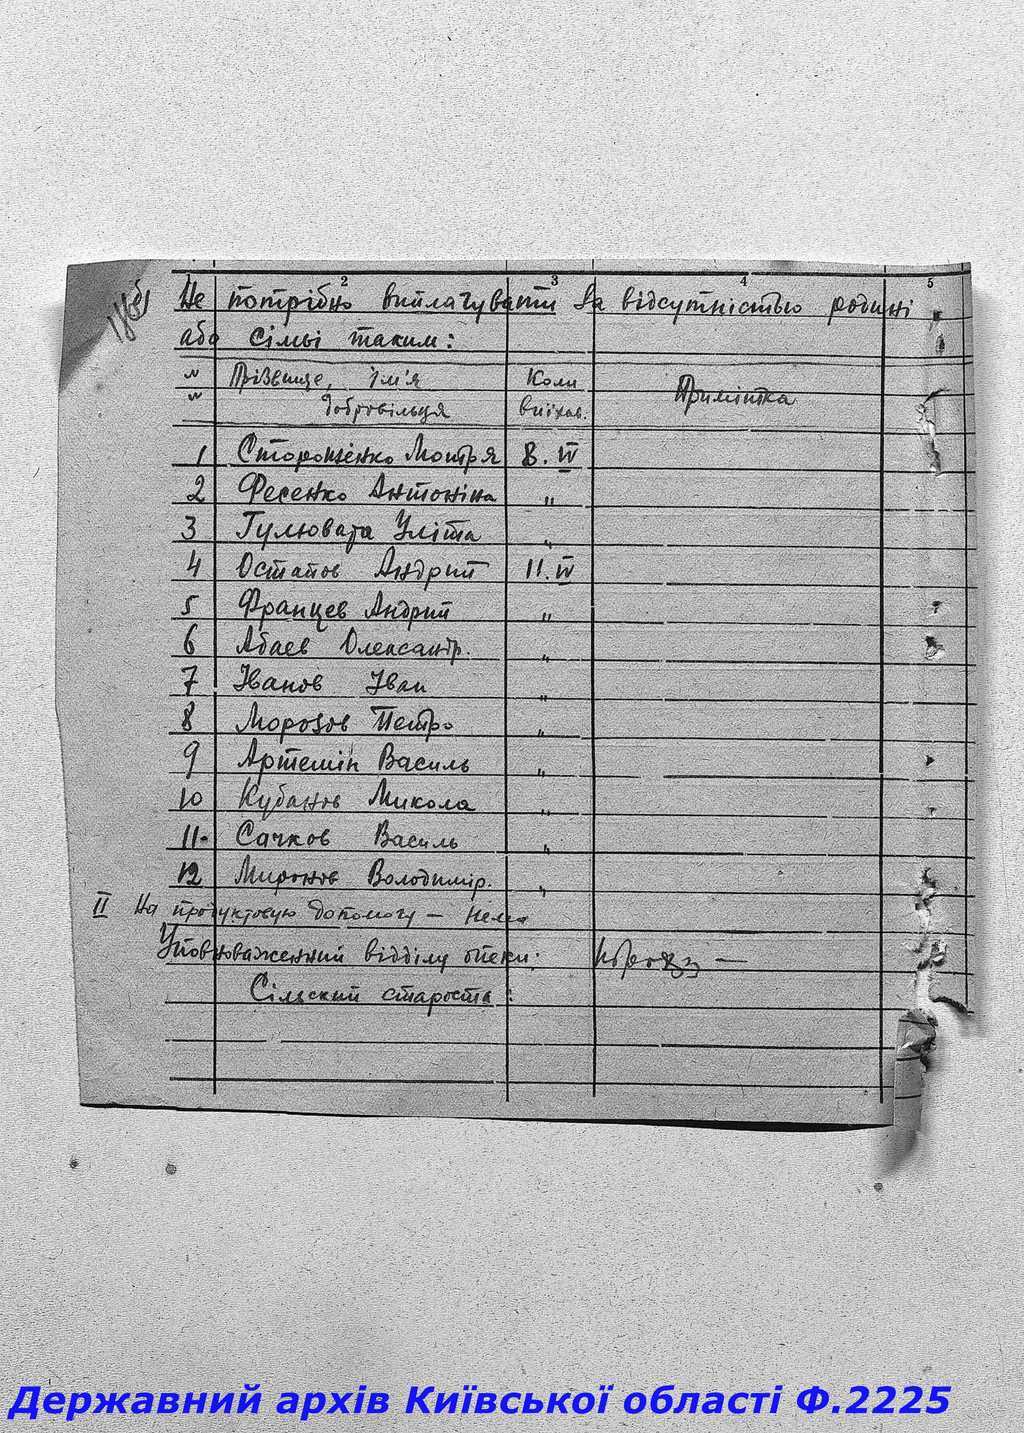 1 2 3 4 5
Не потрібно виплачувати за відсутністью родині
або сімьі таким:
Прізвище, ім'я Коли Примітка
добровільця виїхав.
1 Стороженко Мотря 8. IV
2 Фесенко Антоніна "
3 Гулювата Уліта "
4 Остапов Андрий 11. IV
5 Францев Андрий "
6 Абаєв Олександр. "
7 Іванов Іван "
8 Морозов Петро "
9 Артемін Василь "
10 Кубанов Микола "
11 Сачков Василь "
12 Миронов Володимір. "
II На продуктовую допомогу — нема
Уповноваженний відділу опеки:
Сільский староста:
Державний архів Київської області Ф.2225